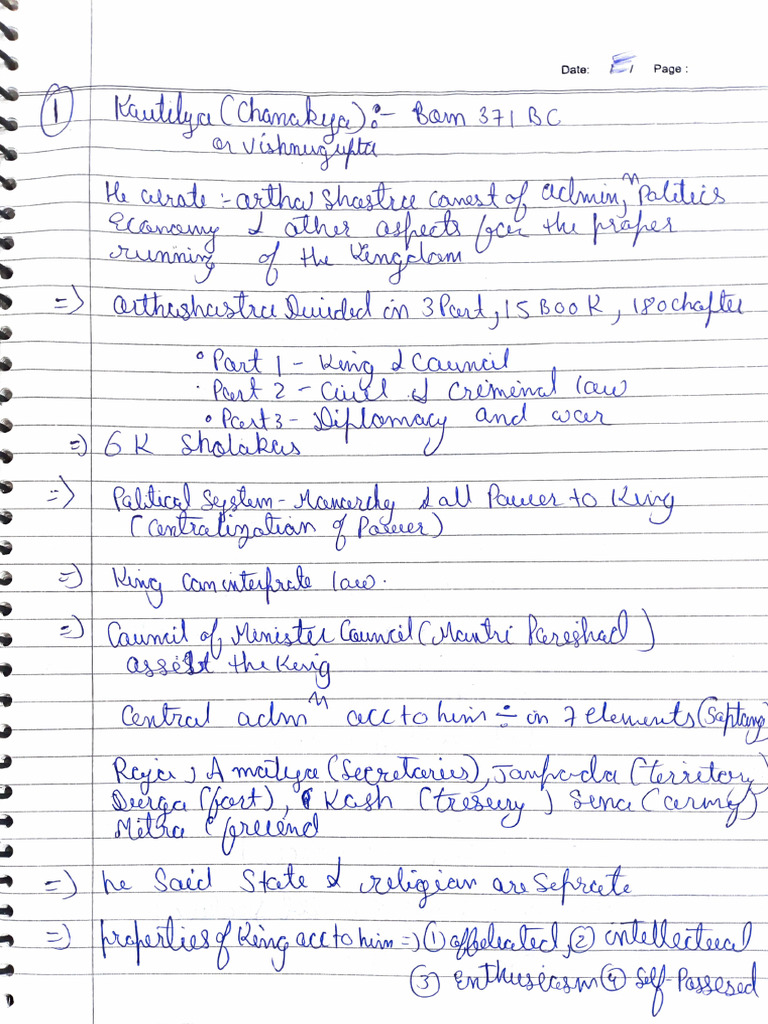 Date: Page :
① Kautilya (Chanakya) :- Born 371 BC
or Vishnugupta
He wrote :- artha shastra const of admin^n, Politics
Economy & other aspects for the proper
running of the Kingdom
=> arthashastra Divided in 3 Part, 15 BOOK, 180 chapter
• Part 1 - King & Council
• Part 2 - Civil & Criminal law
• Part 3 - Diplomacy and war
=> 6 K Sholakas
=> Political System - Monarchy & all Power to King
(Centralization of Power)
=> King can interprate law.
=> Council of Minister Council (Mantri Pareshad)
assist the King
Central adm^n acc to him ÷ in 7 elements (Saptang)
Raja, Amatya (Secretaries), Janpada (territory)
Durga (fort), Kosh (tresury) Sena (army)
Mitra (freiend
=> he Said State & religion are Seprate
=> properties of King acc to him => ① ② intellectual
③ Enthusiasm ④ Self-Possesed